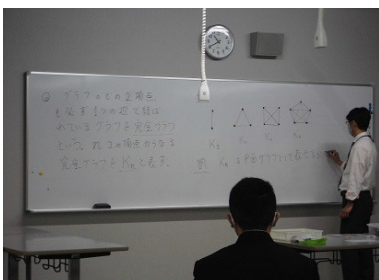 ◎ グラフのどの2頂点
も必ず1つの辺で結ば
れているグラフを完全グラフ
といい、n コの頂点からなる
完全グラフを Kn と表す。
K2 K3 K4 K5
例 K4 は平面グラフとして表せる